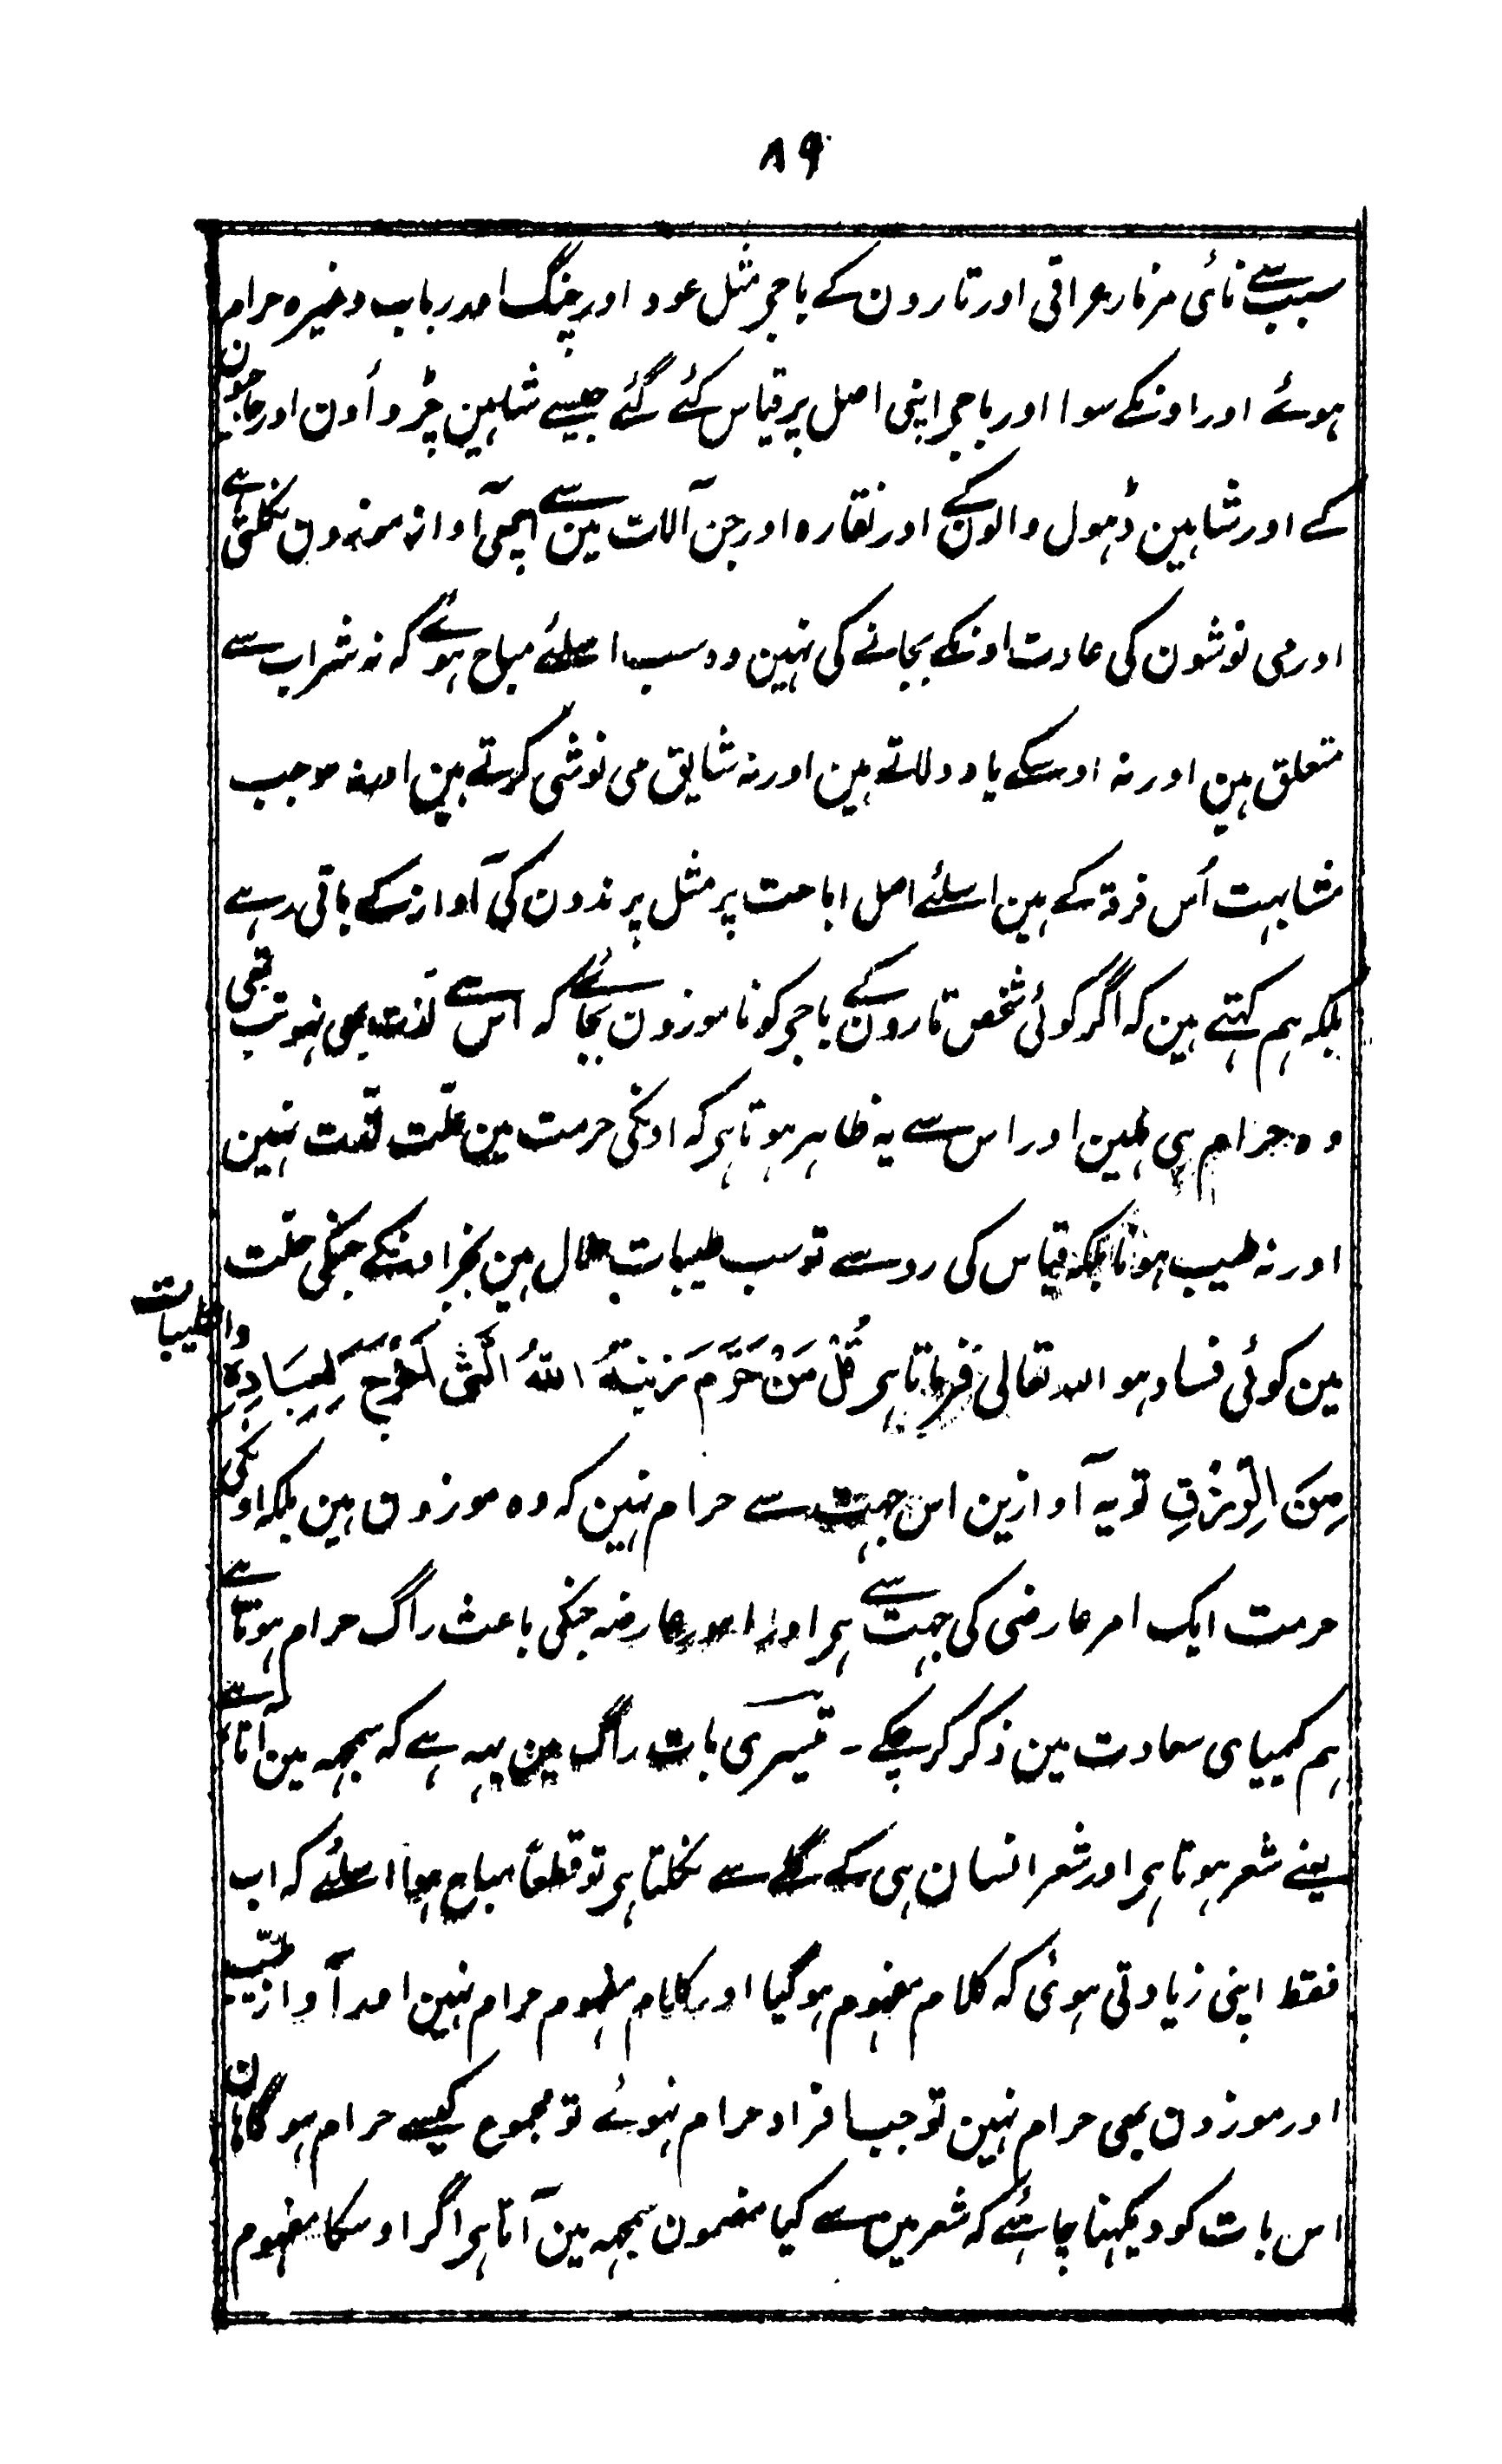 ۸۹
سبب سے نائی مزمار عراقی اور تارون کے باجر مثل عود اور چنگ اور رباب وغیرہ حرام
ہوئے اور اونکے سوا اور باجر اپنی اصل پر قیاس کئے گئے جیسے شاہین چرواہون اور حاجیون
کے اور شاہین ڈہول والون کے اور نقارہ اور جن آلات مین سے اچھی آواز موزون نکلتی ہے
اور می نوشون کی عادت اونکے بجانے کی نہین وہ سب اسلئے مباح ہوئے کہ نہ شراب سے
متعلق ہین اور نہ اوسکے یاد دلاتے ہین اور نہ شایق می نوشی کرتے ہین اور نہ موجب
مشابہت اُس فرقہ کے ہین اسلئے اصل اباحت پر مثل پرندون کی آواز کے باقی رہے
بلکہ ہم کہتے ہین کہ اگر کوئی شخص تارون کے باجر کو ناموزون بجائے کہ اس سے لذت بھی نہو تب بھی
وہ حرام ہی ہین اور اس سے یہ ظاہر ہوتا ہر کہ اونکی حرمت مین علّت لذّت نہین
اور نہ طیب ہونا بلکہ قیاس کی رو سے تو سب طیبات حلال ہین بجز اونکے جنکی حلّت
مین کوئی فساد ہو اللہ تعالیٰ فرماتا ہر قُلْ مَنْ حَرَّمَ زِیْنَۃَ اللّٰہِ الَّتِیْ اَخْرَجَ لِعِبَادِہٖ والطیبات
مِنَ الرِّزْقِ تو یہ آوازین اس جہت سے حرام نہین کہ وہ موزون ہین بلکہ اونکی
حرمت ایک امر عارضی کی جہت سے ہر اور امور عارضہ جنکی باعث راگ حرام ہوتا ہے
ہم کیمیای سعادت مین ذکر کر چکے ۔ تیسری بات راگ مین یہہ ہے کہ سمجہہ مین آتا ہے
یعنے شعر ہوتا ہر اور شعر انسان ہی کے گلے سے نکلتا ہر تو قطعاً مباح ہوا اسلئے کہ اب
فقط اپنی زیادتی ہوئی کہ کلام مفہوم ہوگیا اور کلام مفہوم حرام نہین اور آواز طیّب
اور موزون بھی حرام نہین تو جب افراد حرام نہوئے تو مجموع کیسے حرام ہوگا ہان
اس بات کو دیکہنا چاہئے کہ شعر مین سے کیا مضمون سمجہہ مین آتا ہر اگر اوسکا مفہوم